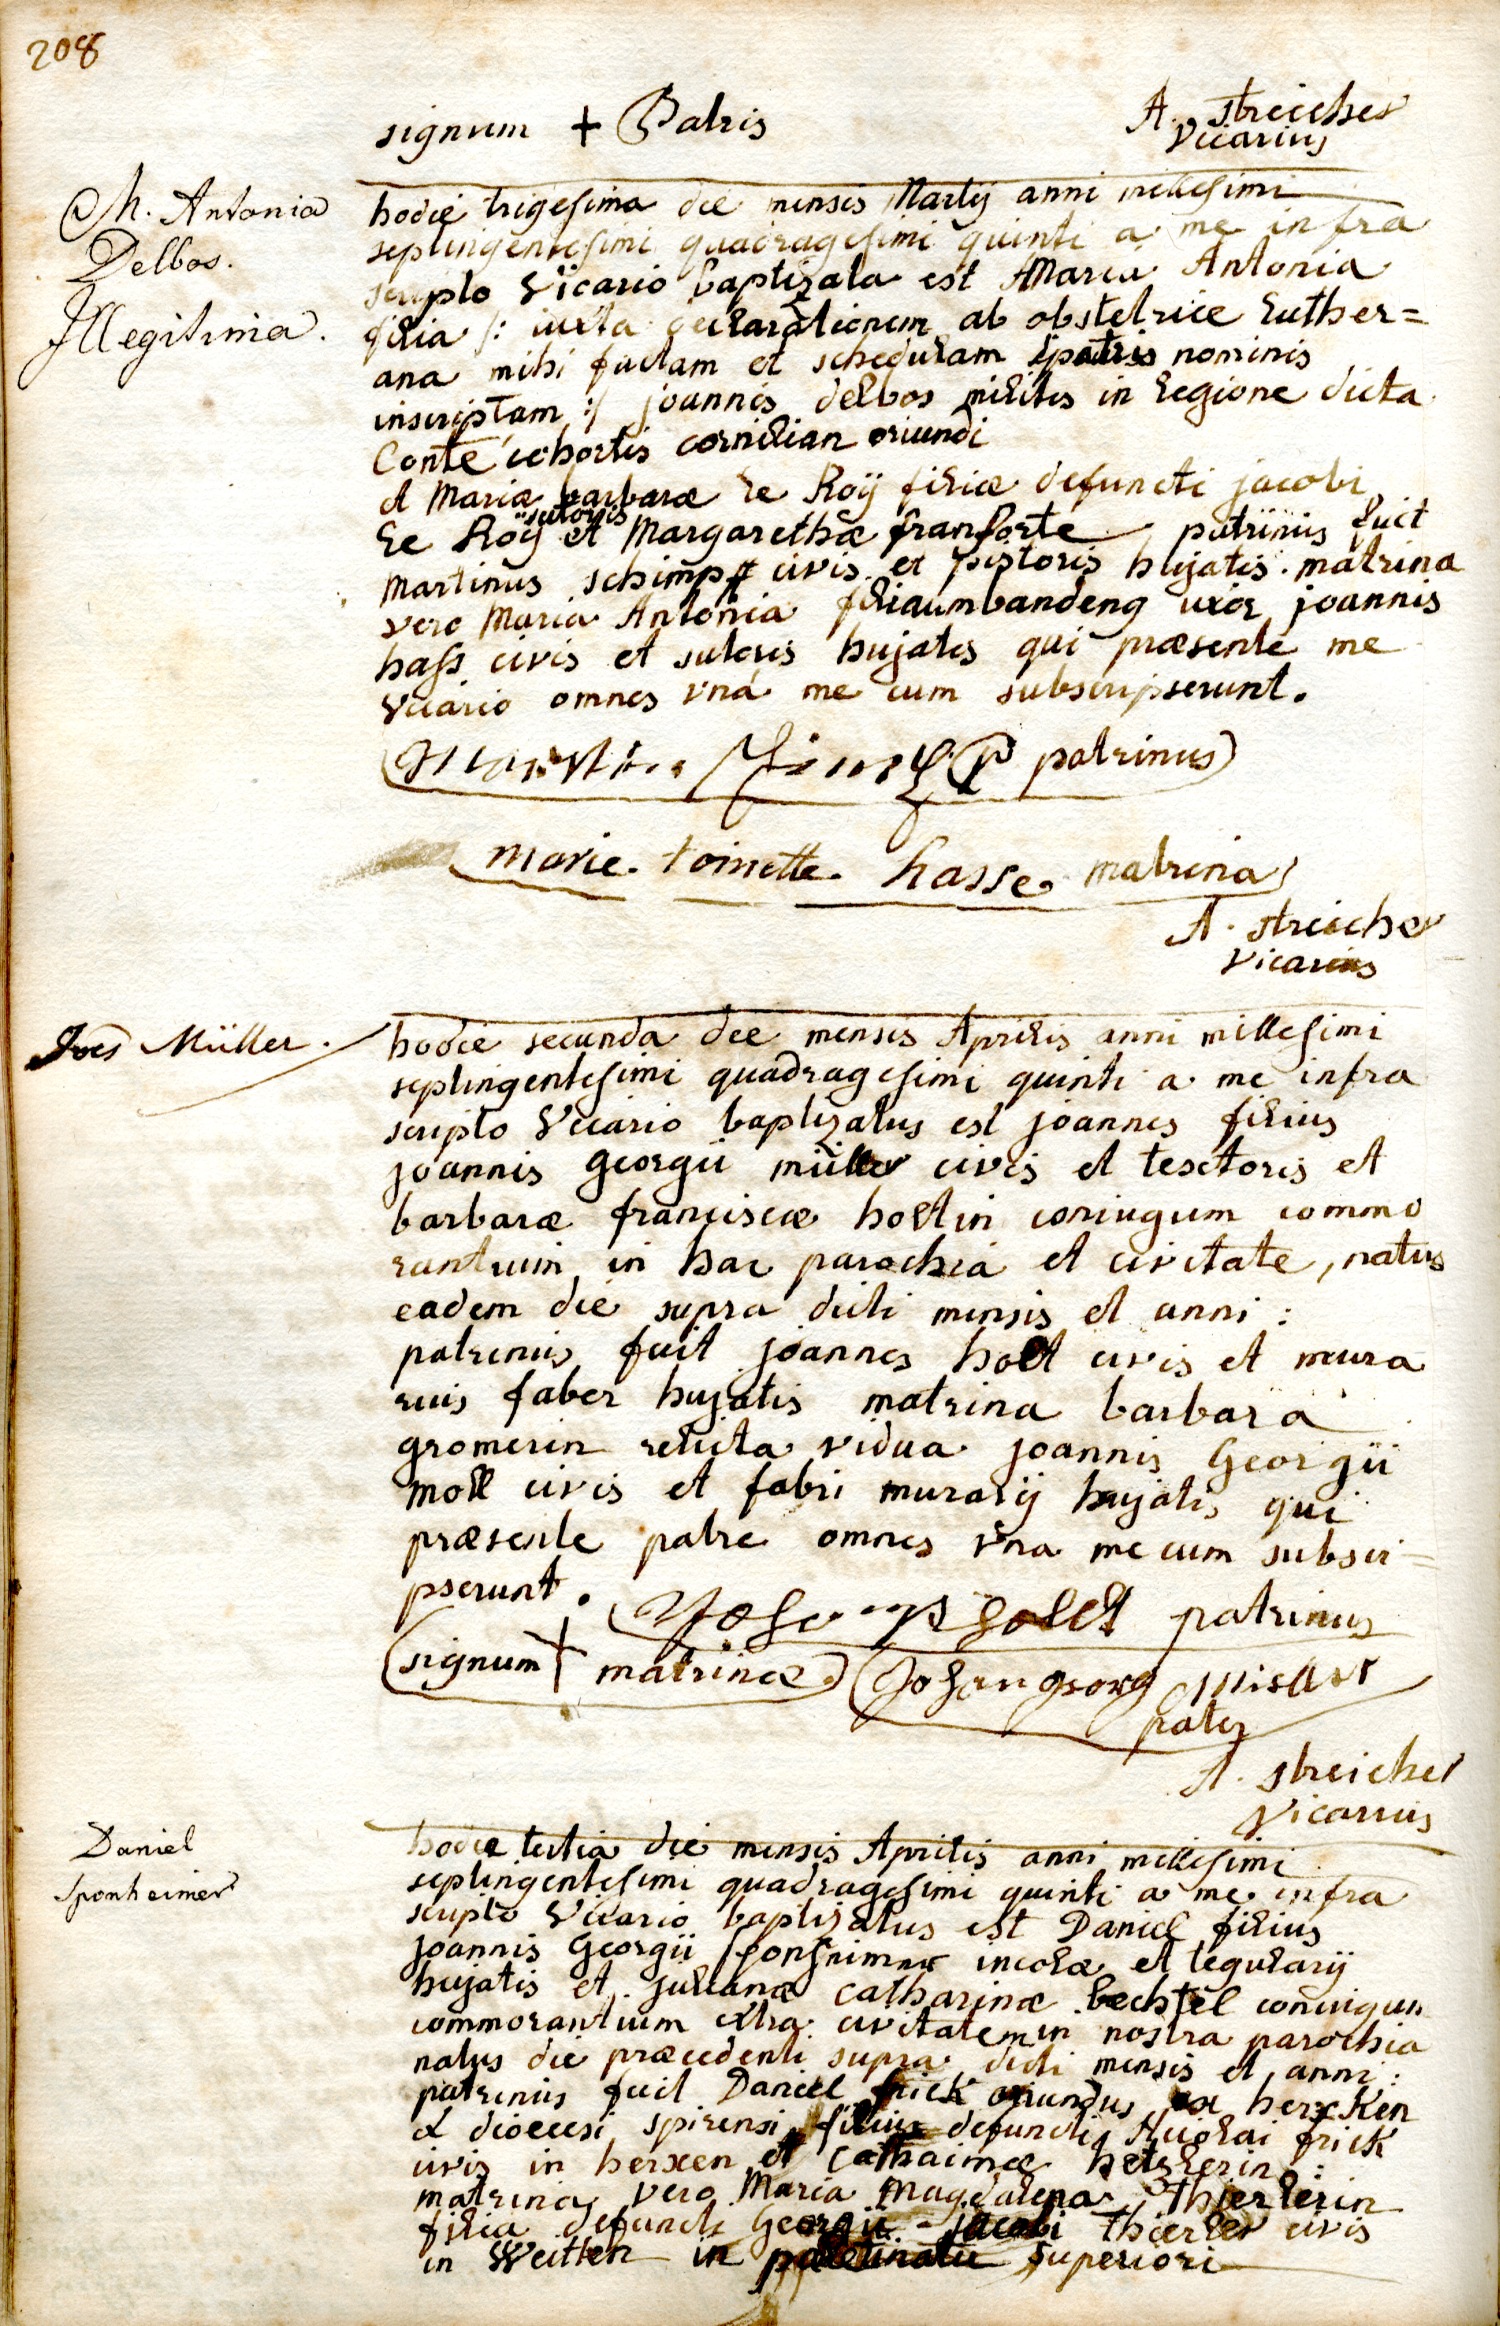 208
signum + Patris
A. Streicher
Vicarius
M. Antonia
Delbos.
Illegitima.
hodie trigesima die mensis Martij anni millesimi
septingentesimi quadragesimi quinti a me infra
scripto Vicario baptizata est Maria Antonia
filia /: iuxta declarationem ab obstetrice Luther=
ana mihi factam et schedulam patris nominis
inscriptam :/ joannis delbos militis in legione dicta
Conte cohortis cornilian oriundi
et Mariæ barbaræ le Roÿ filiæ defuncti jacobi
le Roÿ sutoris et Margarethæ franforte patrinus fuit
Martinus schimpff civis et pistoris hujatis. matrina
vero Maria Antonia uxor joannis
hass civis et sutoris hujatis qui præsente me
Vicario omnes vná me cum subscripserunt.
Martin patrinus
marie. toinette. hasse. matrina
A. Streicher
vicarius
Joes Müller.
hodie secunda die mensis Aprilis anni millesimi
septingentesimi quadragesimi quinti a me infra
scripto Vicario baptizatus est joannes filius
joannis georgii müller civis et textoris et
barbaræ franciscæ holtin coniugum commo
rantium in hac parochia et civitate, natus
eadem die supra dicti mensis et anni :
patrinus fuit joannes holt civis et mura
rius faber hujatis matrina barbara
gromerin relicta vidua joannis Georgii
moll civis et fabri murarij hujatis qui
præsente patre omnes vna mecum subscri=
pserunt. patrinus
signum + matrinæ. Johan georg Miller
pater
A. Streicher
Vicarius
Daniel
Sponheimer
hodie tertia die mensis Aprilis anni millesimi
septingentesimi quadragesimi quinti a me infra
scripto Vicario baptizatus est Daniel filius
joannis Georgii Sponheimer incolæ et tegularij
hujatis et julianæ catharinæ bechtel coniugum
commorantium extra civitatem in nostra parochia
natus die præcedenti supra dicti mensis et anni :
patrinus fuit Daniel frick oriundus ex herxen
diœcesi spirensi filius defuncti Nicolai frick
civis in herxen et :
matrina vero Maria Magdalena Thierlerin
filia defuncti Georgii jacobi Thierler civis
in in palatinatu superiori